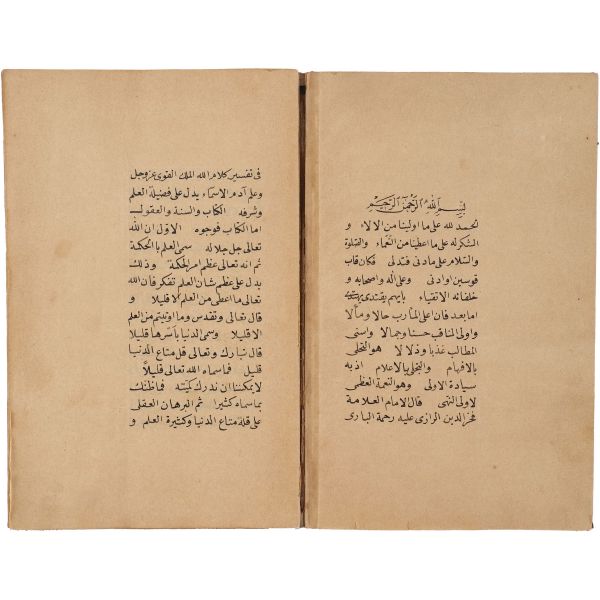 بسم الله الرحمن الرحيم
الحمد لله على ما اولينا من الالاء و
الشكر له على ما اعطينا من النعماء والصلوة
والسلام على من دنى فتدلى فكان قاب
قوسين او ادنى وعلى آله واصحابه و
خلفائه الاتقياء بايهم يقتدى يهتدى
اما بعد فان اعلى المآرب حالا ومآلا
واولى المناقب حسنا وجمالا واسنى
المطالب غذيا وذلالا هو التحلى
بالافهام والتخلى بالاعلام اذ به
سيادة الاولى وهو النعمة العظمى
لاولى النهى قال الامام العلامة
فخر الدين الرازى عليه رحمة البارى
فى تفسير كلام الله الملك القوى عز وجل
وعلم آدم الاسماء يدل على فضيلة العلم
وشرفه الكتاب والسنة والعقول
اما الكتاب فوجوه الاول ان الله
تعالى جل جلاله سمى العلم بالحكمة
ثم انه تعالى عظم امر الحكمة وذلك
يدل على عظم شان العلم تفكر فان الله
تعالى ما اعطى من العلم الا قليلا و
قال تعالى وتقدس وما اوتيتم من العلم
الا قليلا وسمى الدنيا باسرها قليلا
قال تبارك وتعالى قل متاع الدنيا
قليل فما سماه الله تعالى قليلاً
لا يمكننا ان ندرك كميّته فما ظنك
بما سماه كثيرا ثم البرهان العقلى
على قلة متاع الدنيا وكثيرة العلم و